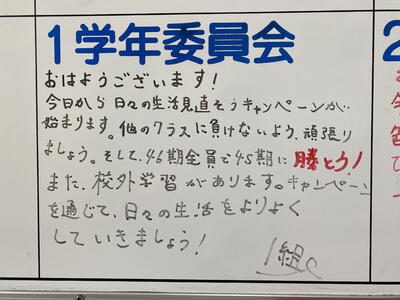 1学年委員会
おはようございます!
今日から日々の生活見直そうキャンペーンが
始まります。他のクラスに負けないよう、頑張り
ましょう。そして、46期全員で45期に勝とう!
また、校外学習があります。キャンペーン
を通じて、日々の生活をよりよく
していきましょう!
1組
2